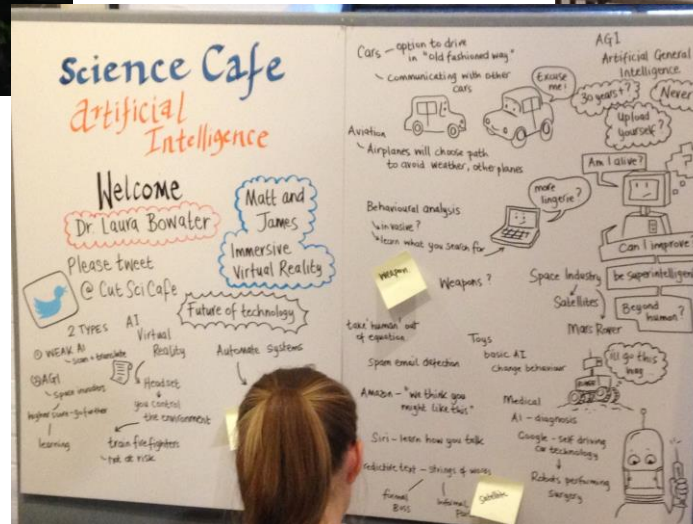 Science Cafe
Artificial
Intelligence
Welcome
Dr. Laura Bowater
Matt and
James
Immersive
Virtual Reality
Please tweet
@ Cut Sci Cafe
Future of technology
2 TYPES
① WEAK AI
scan + translate
② AGI
space invaders
higher score - go further
learning
AI
Virtual
Reality
Headset
you control
the environment
train firefighters
not at risk
Automate systems
Cars - option to drive
in "old fashioned way"
communicating with other
cars
Excuse
me!
Aviation
Airplanes will choose path
to avoid weather, other planes
Behavioural analysis
invasive?
learn what you search for
more
lingerie?
weapon
Weapons?
take 'human' out
of equation
Spam email detection
Amazon - "we think you
might like this"
Siri - learn how you talk
predictive text - strings of words
formal
Boss
Informal
Satellite
Toys
basic AI
change behaviour
Medical
AI - diagnosis
Google - self driving
car technology
Robots performing
surgery
AGI
Artificial General
Intelligence
30 years+?
Never
Upload
yourself?
Am I alive?
?
Can I improve?
be superintelligen
Beyond
human?
Space Industry
Satellites
Mars Rover
i'll go this
way